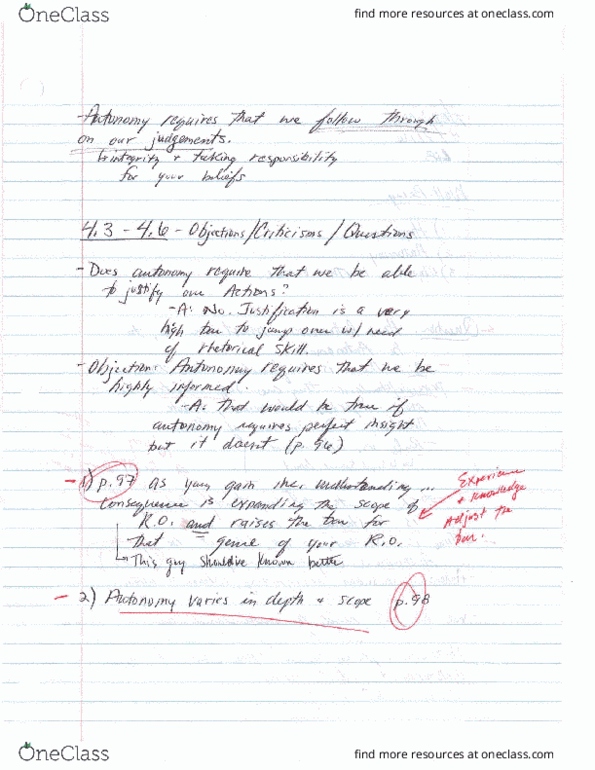 OneClass
find more resources at oneclass.com
-Autonomy requires that we follow through
on our judgements.
↳integrity + taking responsibility
for your beliefs
4.3 - 4.6 - Objections/Criticisms / Questions
-Does autonomy require that we be able
to justify our Actions?
-A: No. Justification is a very
high bar to jump over w/ need
of rhetorical skill.
-Objection: Autonomy requires that we be
highly informed.
-A: That would be true if
autonomy requires perfect insight
but it doesnt (p. 96)
- 1) p.97 as you gain understanding ...
Consequence is expanding the scope of
R.O. and raises the bar for
that genre of your R.O.
↳This guy should've known better
Experience
+ knowledge
Adjust the
bar.
- 2) Autonomy varies in depth + scope p.98
OneClass
find more resources at oneclass.com